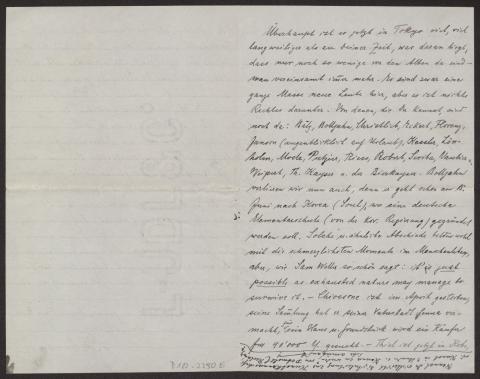 Überhaupt ist es jetzt in Tokyo viel, viel
langweiliger als zu deiner Zeit, was daran liegt,
dass nur noch so wenige von den Alten da sind –
man vereinsamt immer mehr. Es sind zwar eine
ganze Masse neue Leute hier, aber es ist nichts
Rechtes darunter. Von denen, die Du kennst, sind
noch da: Bälz, Bolljahn, Ehrichlich, Eckert, Florenz,
Janson (augenblicklich auf Urlaub), Kessler, Lön-
holm, Mosle, Putzier, Riess, Robert, Scriba, Vautier,
Weipert, Th. Kayser u. der Bierkayser. Bolljahn
verlieren wir nun auch, denn er geht schon am
Juni nach Korea (Soul), wo eine deutsche
Elementarschule (von der Kor. Regierung) gegründet
werden soll. Solche u. ähnliche Abschiede bilden wohl
mit die schmerzlichsten Momente im Menschenleben,
aber, wie Sam Weller so schön sagt: it is just
possible as exhausted nature may manage to
survive it. – Chiossone ist im April gestorben,
seine Sammlung hat er seiner Vaterstadt Genua ver-
macht, sein Haus u. Grundstück wird ein Käufer
für 40'000 Y. gesucht. – Thiel ist jetzt in Kobe,